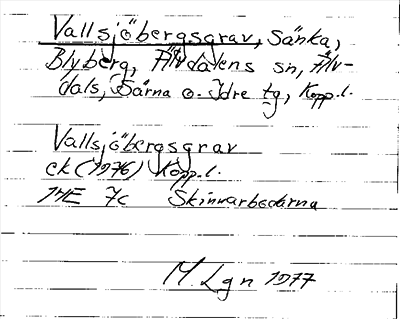 Vallsjöbergsgrav, sänka,
Blyberg, Älvdalens sn, Älv-
dals, Särna o. Idre tg, Kopp.l.
Vallsjöbergsgrav
ek (1976) Kopp.l.
14E 7c Skinnarbedarna
M. Lgn 1977